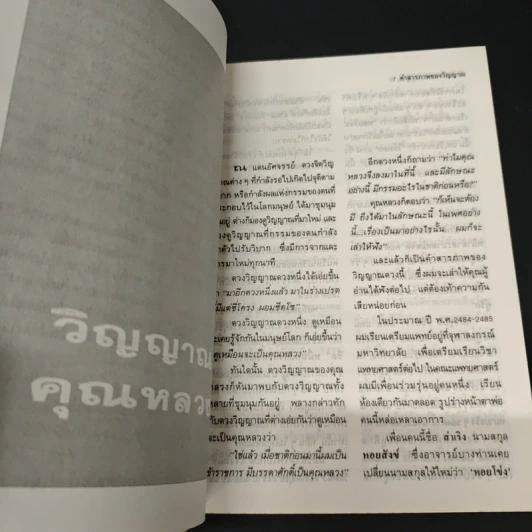 วิญญาณ
คุณหลวง
คำสารภาพของวิญญาณ
ณ แดนอัศจรรย์ ดวงจิตวิญ
ณต่าง ๆ ที่กำลังรอไปเกิดไปจุติตาม
หรือกำลังผลแห่งกรรมของตนที่
ะกอบไว้ในโลกมนุษย์ ได้มาชุมนุม
อยู่ ต่างก็มองดูวิญญาณที่มาใหม่ และ
งดูวิญญาณที่กรรมของตนกำลัง
ตัวไปรับวิบาก ซึ่งมีการจากและ
ารมาใหม่ทุกนาที
ดวงวิญญาณดวงหนึ่งได้เอ่ยขึ้น
"มาอีกดวงหนึ่งแล้ว มาในร่างเปรต
มีแต่ซี่โครง ผอมซีดโซ"
ดวงวิญญาณดวงหนึ่ง ดูเหมือน
ะเคยรู้จักกันในมนุษย์โลก ก็เอ่ยขึ้นว่า
ดูเหมือนจะเป็นคุณหลวง"
ทันใดนั้น ดวงวิญญาณของคุณ
ลวงก็หันมาพบกับดวงวิญญาณทั้ง
หลายที่ชุมนุมกันอยู่ พลางกล่าวทัก
กับดวงวิญญาณที่ต่างเอ่ยกันว่าดูเหมือน
จะเป็นคุณหลวงว่า
"ใช่แล้ว เมื่อชาติก่อนมานี้ผมเป็น
ข้าราชการ มีบรรดาศักดิ์เป็นคุณหลวง"
อีกดวงหนึ่งก็ถามว่า "ทำไมคุณ
หลวงจึงลงมาในที่นี้ และมีลักษณะ
อย่างนี้ มีกรรมอะไรในชาติก่อนหรือ?"
คุณหลวงก็ตอบว่า "ก็เห็นจะต้อง
มี ถึงได้มาในลักษณะนี้ ในเพศอย่าง
นี้...เรื่องเป็นมาอย่างไรนั้น ผมก็จะ
เล่าให้ฟัง"
และแล้วก็เป็นคำสารภาพของ
วิญญาณดวงนี้ ซึ่งผมจะเล่าให้คุณผู้
อ่านได้ฟังต่อไป แต่ต้องเท้าความกัน
เสียหน่อยก่อน
ในประมาณ ปี พ.ศ.2484-2485
ผมเรียนเตรียมแพทย์อยู่ที่จุฬาลงกรณ์
มหาวิทยาลัย เพื่อเตรียมเรียนวิชา
แพทยศาสตร์ต่อไป ในคณะแพทยศาสตร์
ผมมีเพื่อนร่วมรุ่นอยู่คนหนึ่ง เรียน
ห้องเดียวกันมาตลอด รูปร่างหน้าตาพ่อ
คนนี้หล่อเหลาเอาการ
เพื่อนคนนี้ชื่อ สำเริง นามสกุล
หอยสังข์ ซึ่งอาจารย์บางท่านเคย
เปลี่ยนนามสกุลให้ใหม่ว่า 'หอยโข่ง'